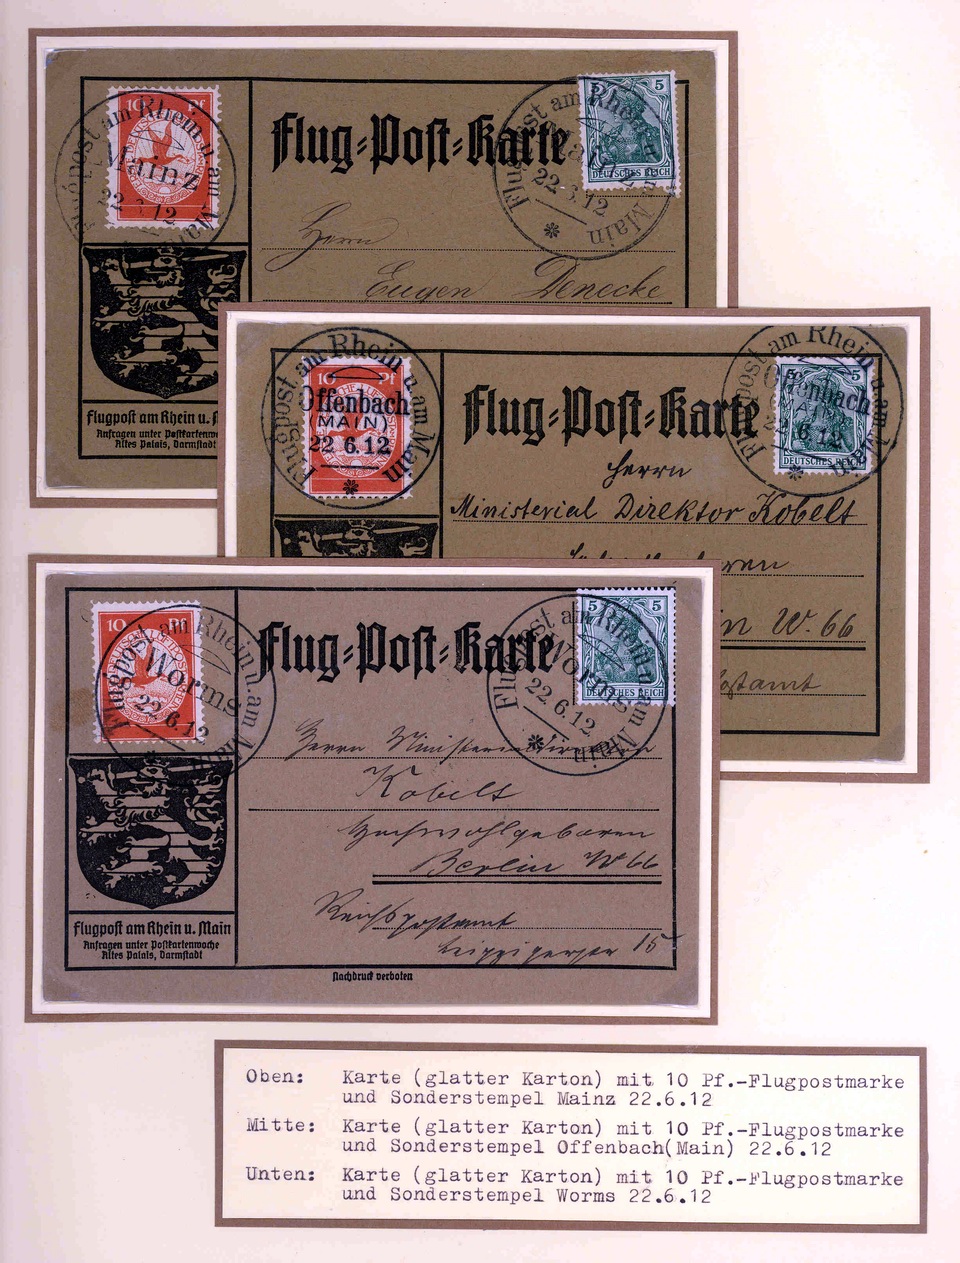 10 Pf
Flugpost am Rhein u. am Main
Mainz
22.6.12
Flug-Post-Karte
5 5
DEUTSCHES REICH
Flugpost am Rhein u. am Main
Mainz
22.6.12
Herrn
Eugen Denecke
Flugpost am Rhein u.
Anfragen unter Postkartenwo
Altes Palais, Darmstadt
10 Pf
Flugpost am Rhein u. am Main
Offenbach
(MAIN)
22.6.12
Flug-Post-Karte
5 5
DEUTSCHES REICH
Flugpost am Rhein u. am Main
Offenbach
(MAIN)
22.6.12
Herrn
Ministerial Direktor Kobelt
in W. 66
ostamt
10 Pf
Flugpost am Rhein u. am Main
Worms
22.6.12
Flug-Post-Karte
5 5
DEUTSCHES REICH
Flugpost am Rhein u. am Main
Worms
22.6.12
Herrn Ministerialdirektor
Kobelt
Hochwohlgeboren
Berlin W 66
Reichspostamt
Leipzigerstr 15
Flugpost am Rhein u. Main
Anfragen unter Postkartenwoche
Altes Palais, Darmstadt
Nachdruck verboten
Oben: Karte (glatter Karton) mit 10 Pf.-Flugpostmarke
und Sonderstempel Mainz 22.6.12
Mitte: Karte (glatter Karton) mit 10 Pf.-Flugpostmarke
und Sonderstempel Offenbach(Main) 22.6.12
Unten: Karte (glatter Karton) mit 10 Pf.-Flugpostmarke
und Sonderstempel Worms 22.6.12